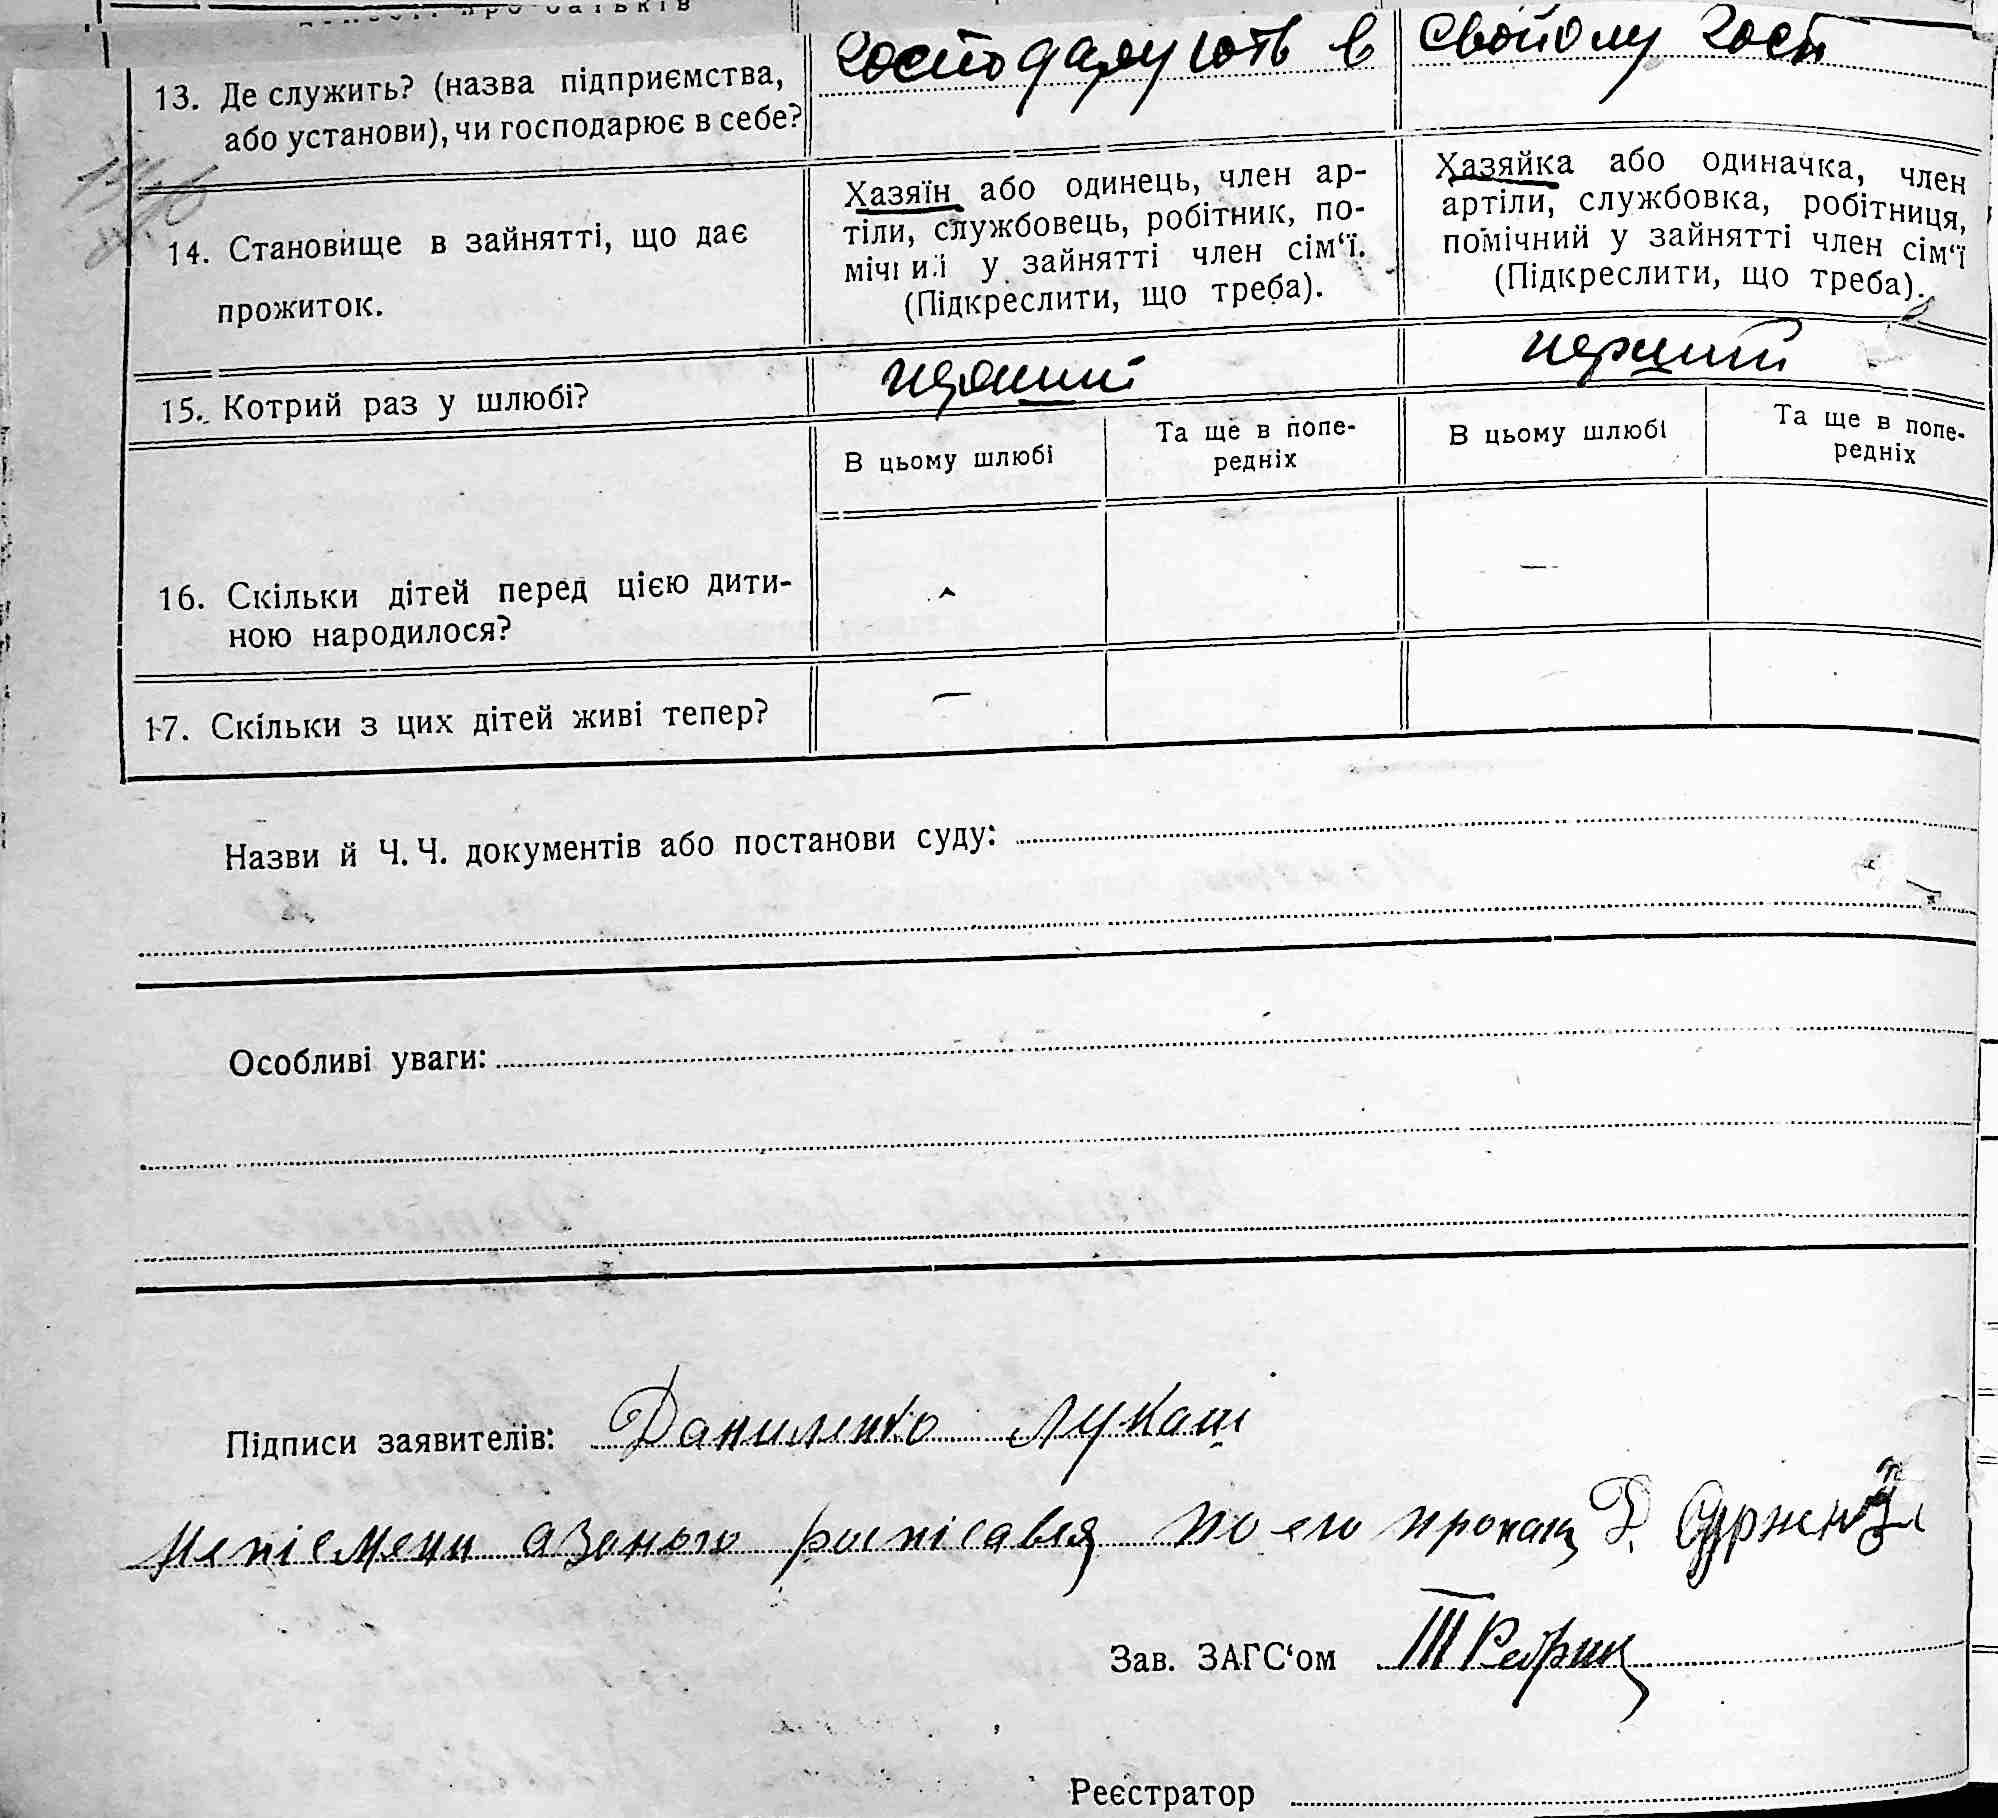 13. Де служить? (назва підприємства,
або установи), чи господарює в себе?
господарують в свойому госп
14. Становище в зайнятті, що дає
прожиток.
Хазяїн або одинець, член ар-
тіли, службовець, робітник, по-
мічний у зайнятті член сім‘ї.
(Підкреслити, що треба).
Хазяйка або одиначка, член
артіли, службовка, робітниця,
помічний у зайнятті член сім‘ї
(Підкреслити, що треба).
15. Котрий раз у шлюбі?
перший
перший
В цьому шлюбі
Та ще в попе-
редніх
В цьому шлюбі
Та ще в попе-
редніх
16. Скільки дітей перед цією дити-
ною народилося?
—
17. Скільки з цих дітей живі тепер?
—
Назви й Ч. Ч. документів або постанови суду:
Особливі уваги:
Підписи заявителів: Даниленко Лукаш
росписався по его
Зав. ЗАГС‘ом
Реєстратор